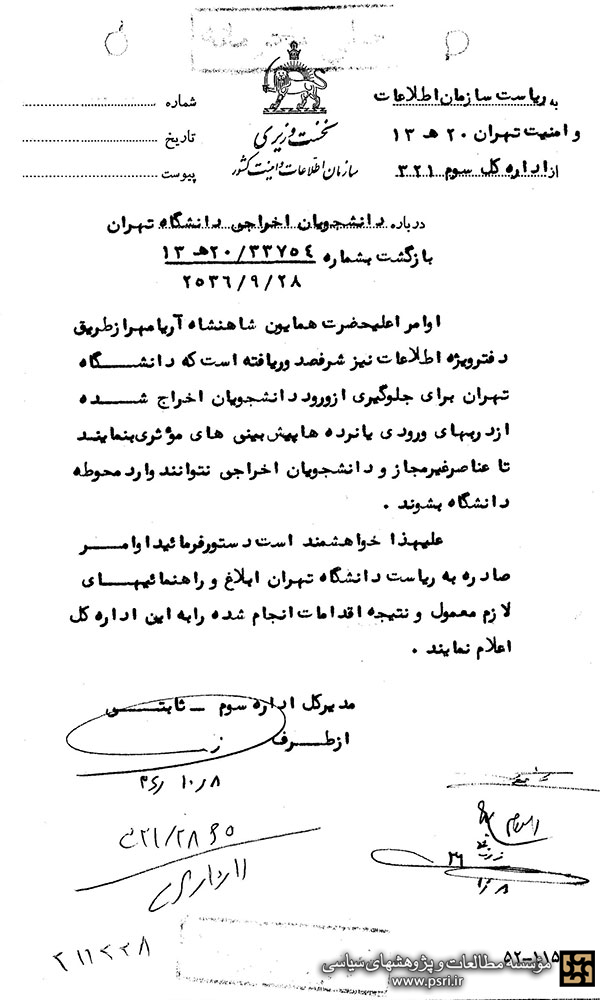 به ریاست سازمان اطلاعات
و امنیت تهران ۲۰ هـ ۱۳
از اداره کل سوم ۳۲۱
نخست وزیری
سازمان اطلاعات و امنیت کشور
شماره
تاریخ
پیوست
درباره دانشجویان اخراجی دانشگاه تهران
بازگشت بشماره ۲۰/۳۳۷۵۴هـ ۱۳
۲۵۳۶/۹/۲۸
اوامر اعلیحضرت همایون شاهنشاه آریامهر از طریق
دفتر ویژه اطلاعات نیز شرفصد وریافته است که دانشگاه
تهران برای جلوگیری از ورود دانشجویان اخراج شده
از دربهای ورودی یا نرده ها پیش بینی های مؤثری بنمایند
تا عناصر غیر مجاز و دانشجویان اخراجی نتوانند وارد محوطه
دانشگاه بشوند .
علیهذا خواهشمند است دستور فرمائید اوامر
صادره به ریاست دانشگاه تهران ابلاغ و راهنمائیهای
لازم معمول و نتیجه اقدامات انجام شده را به این اداره کل
اعلام نمایند .
مدیر کل اداره سوم - ثابتی
از طرف
۳۱۱۲۲۸
۵۲-۱۱۵
مؤسسه مطالعات و پژوهشهای سیاسی
www.psri.ir